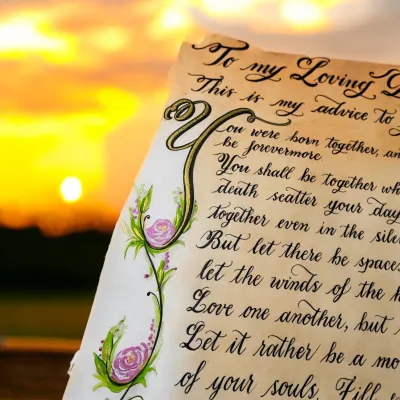 To my Loving
This is my advice to
You were born together, an
be forevermore
You shall be together wh
death scatter your day
together even in the silen
But let there be spaces
let the winds of the h
Love one another, but
Let it rather be a mo
of your souls. Fill